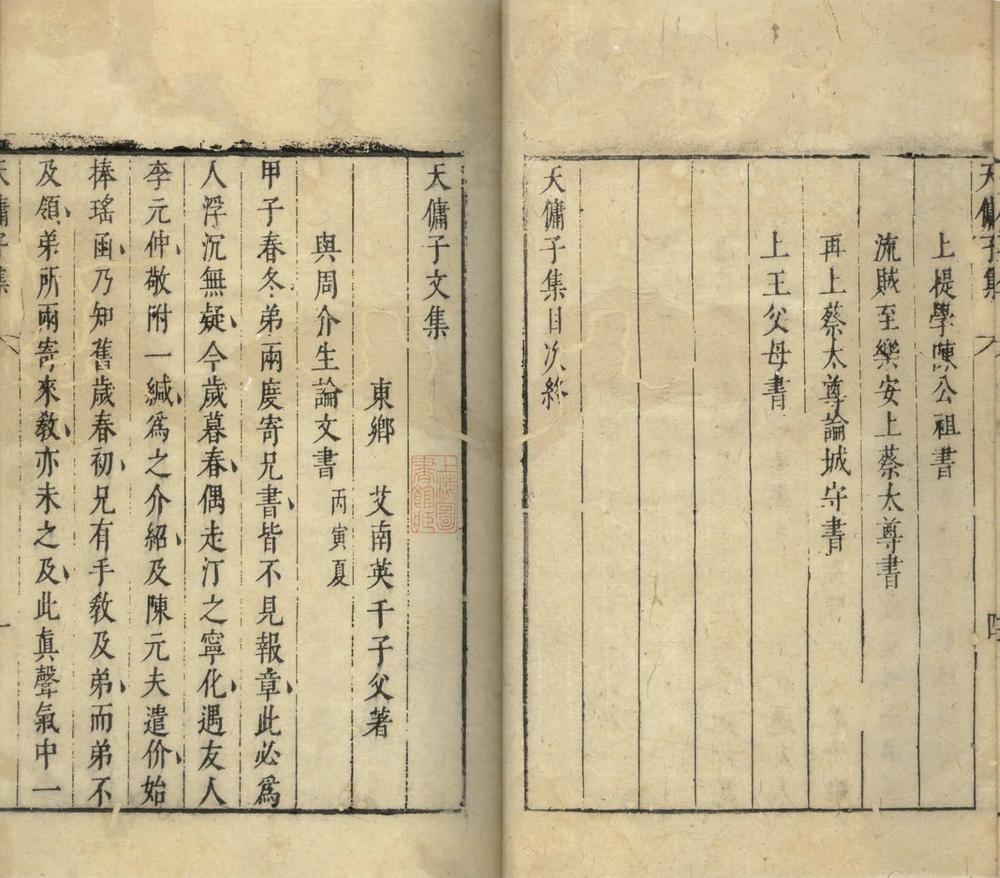 天傭子集
上提學陳公祖書
流賊至樂安上蔡太尊書
再上蔡太尊論城守書
上王父母書
天傭子集目次終
天傭子文集
東鄉 艾南英千子父著
與周介生論文書 丙寅夏
甲子春冬弟兩度寄兄書皆不見報章此必為
人浮沉無疑今歲暮春偶走汀之寧化遇友人
李元仲敬附一緘為之介紹及陳元夫遣价始
捧瑤函乃知舊歲春初兄有手教及弟而弟不
及領弟所兩寄來教亦未之及此真聲氣中一
天傭子集
上海圖書館藏